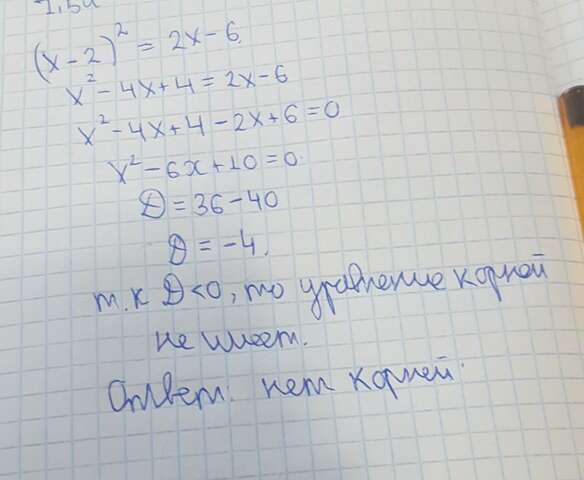 (x-2)² = 2x-6
x²-4x+4=2x-6
x²-4x+4-2x+6=0
x²-6x+10=0
D=36-40
D=-4.
т.к D<0, то уравнение корней
не имеет.
Ответ: нет корней.